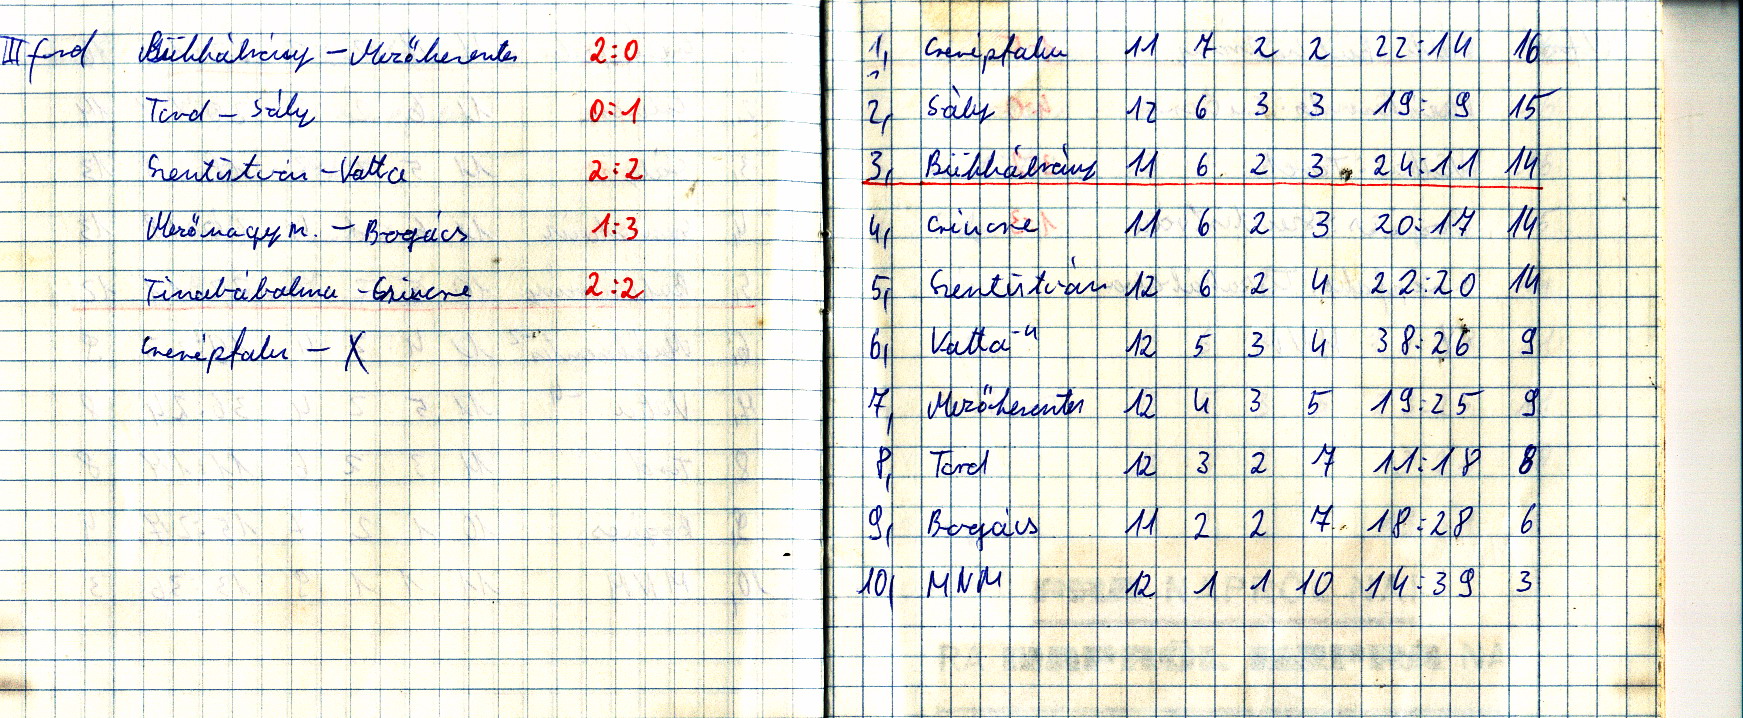 III ford Bükkábrány - Mezőkeresztes 2:0
Tard - Sály 0:1
Szentistván - Vatta 2:2
Mezőnagym. - Bogács 1:3
Tiszabábolna - Csincse 2:2
Cserépfalu - X
1, Cserépfalu 11 7 2 2 22:14 16
2, Sály 12 6 3 3 19:9 15
3, Bükkábrány 11 6 2 3 24:11 14
4, Csincse 11 6 2 3 20:17 14
5, Szentistván 12 6 2 4 22:20 14
6, Vatta -4 12 5 3 4 38:26 9
7, Mezőkeresztes 12 4 3 5 19:25 9
8, Tard 12 3 2 7 11:18 8
9, Bogács 11 2 2 7 18:28 6
10, MNM 12 1 1 10 14:39 3